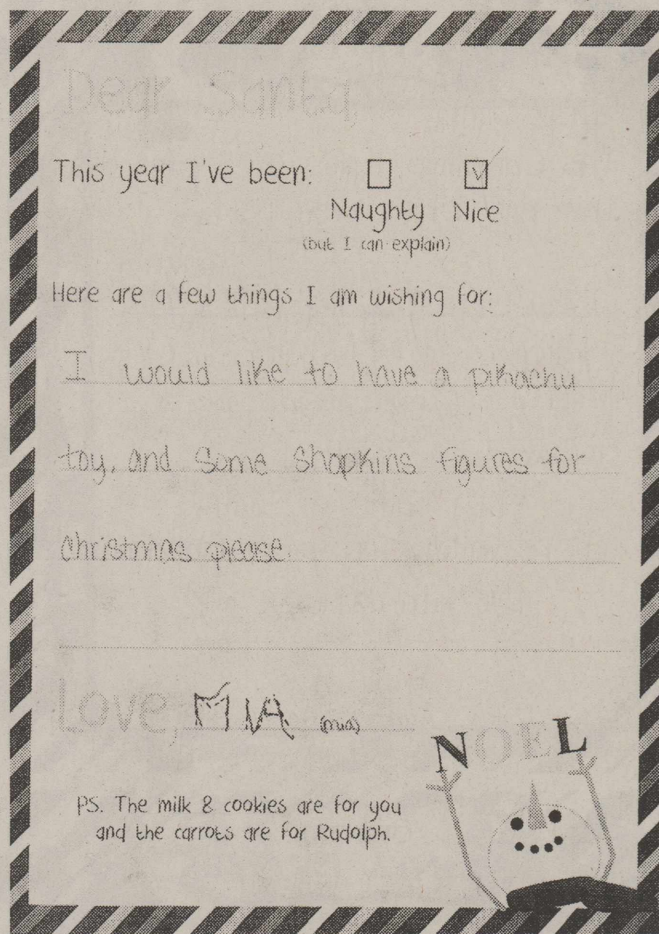 Dear Santa
This year I've been:
Naughty Nice
(but I can explain)
Here are a few things I am wishing for:
I would like to have a pikachu
toy, and some shopkins figures for
christmas please
Love, MIA (mia)
NOEL
PS. The milk & cookies are for you
and the carrots are for Rudolph.